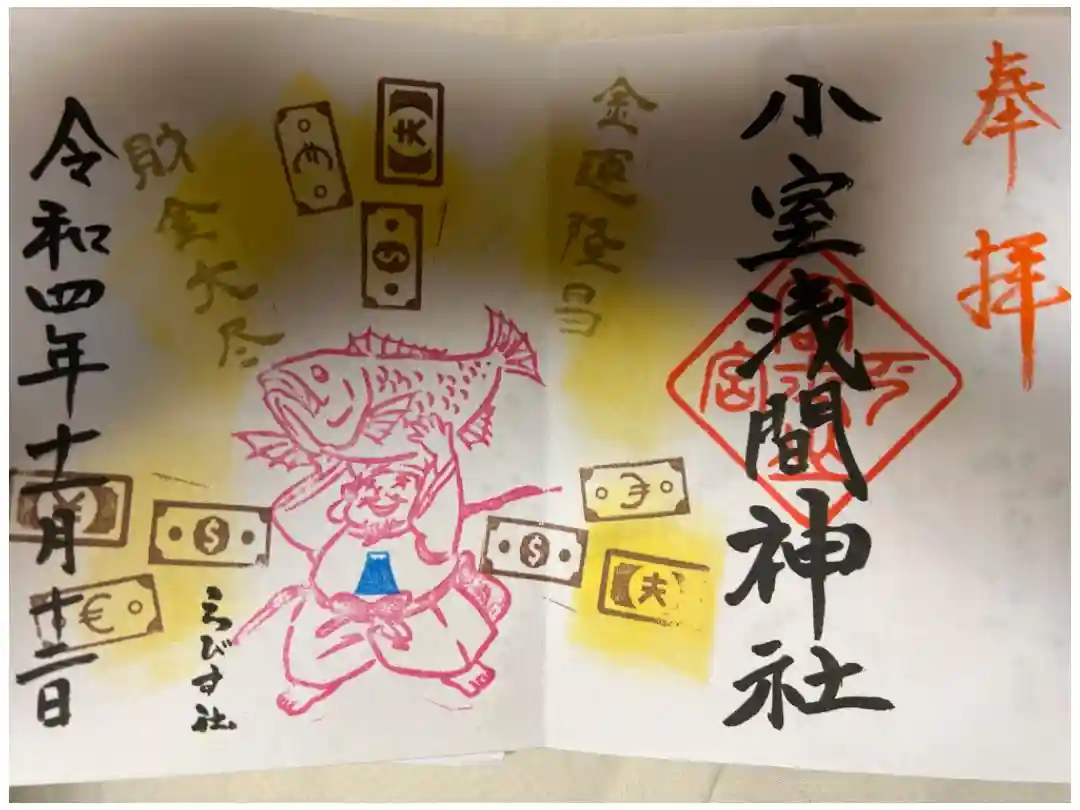 奉拝
小室浅間神社
金運隆昌
財金大尽
えびす社
令和四年十一月十二日
$
$
$
€